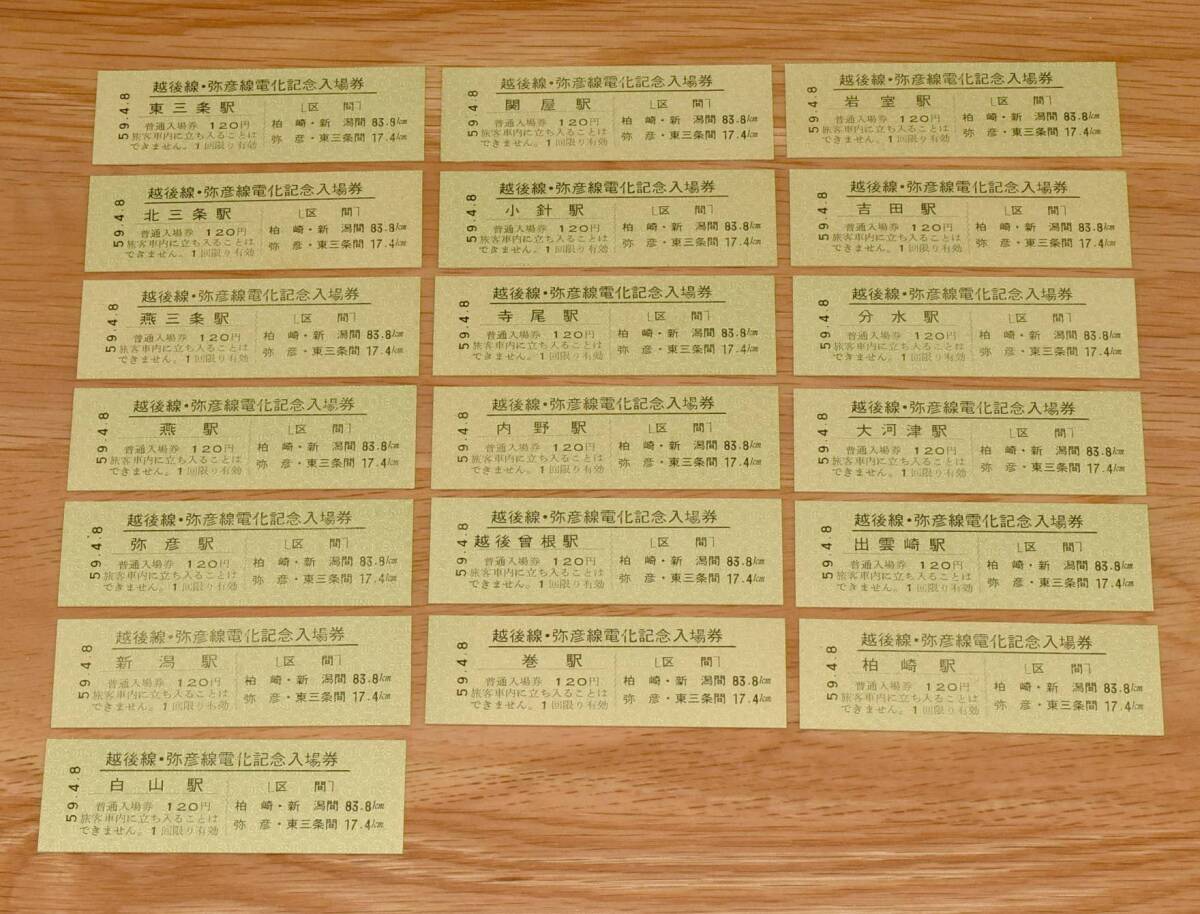 越後線・弥彦線電化記念入場券
59.4.8
東三条駅
普通入場券 120円
旅客車内に立ち入ることは
できません。1回限り有効
〔区 間〕
柏 崎・新 潟間 83.8km
弥 彦・東三条間 17.4km
越後線・弥彦線電化記念入場券
59.4.8
関屋駅
普通入場券 120円
旅客車内に立ち入ることは
できません。1回限り有効
〔区 間〕
柏 崎・新 潟間 83.8km
弥 彦・東三条間 17.4km
越後線・弥彦線電化記念入場券
59.4.8
岩室駅
普通入場券 120円
旅客車内に立ち入ることは
できません。1回限り有効
〔区 間〕
柏 崎・新 潟間 83.8km
弥 彦・東三条間 17.4km
越後線・弥彦線電化記念入場券
59.4.8
北三条駅
普通入場券 120円
旅客車内に立ち入ることは
できません。1回限り有効
〔区 間〕
柏 崎・新 潟間 83.8km
弥 彦・東三条間 17.4km
越後線・弥彦線電化記念入場券
59.4.8
小針駅
普通入場券 120円
旅客車内に立ち入ることは
できません。1回限り有効
〔区 間〕
柏 崎・新 潟間 83.8km
弥 彦・東三条間 17.4km
越後線・弥彦線電化記念入場券
59.4.8
吉田駅
普通入場券 120円
旅客車内に立ち入ることは
できません。1回限り有効
〔区 間〕
柏 崎・新 潟間 83.8km
弥 彦・東三条間 17.4km
越後線・弥彦線電化記念入場券
59.4.8
燕三条駅
普通入場券 120円
旅客車内に立ち入ることは
できません。1回限り有効
〔区 間〕
柏 崎・新 潟間 83.8km
弥 彦・東三条間 17.4km
越後線・弥彦線電化記念入場券
59.4.8
寺尾駅
普通入場券 120円
旅客車内に立ち入ることは
できません。1回限り有効
〔区 間〕
柏 崎・新 潟間 83.8km
弥 彦・東三条間 17.4km
越後線・弥彦線電化記念入場券
59.4.8
分水駅
普通入場券 120円
旅客車内に立ち入ることは
できません。1回限り有効
〔区 間〕
柏 崎・新 潟間 83.8km
弥 彦・東三条間 17.4km
越後線・弥彦線電化記念入場券
59.4.8
燕駅
普通入場券 120円
旅客車内に立ち入ることは
できません。1回限り有効
〔区 間〕
柏 崎・新 潟間 83.8km
弥 彦・東三条間 17.4km
越後線・弥彦線電化記念入場券
59.4.8
内野駅
普通入場券 120円
旅客車内に立ち入ることは
できません。1回限り有効
〔区 間〕
柏 崎・新 潟間 83.8km
弥 彦・東三条間 17.4km
越後線・弥彦線電化記念入場券
59.4.8
大河津駅
普通入場券 120円
旅客車内に立ち入ることは
できません。1回限り有効
〔区 間〕
柏 崎・新 潟間 83.8km
弥 彦・東三条間 17.4km
越後線・弥彦線電化記念入場券
59.4.8
弥彦駅
普通入場券 120円
旅客車内に立ち入ることは
できません。1回限り有効
〔区 間〕
柏 崎・新 潟間 83.8km
弥 彦・東三条間 17.4km
越後線・弥彦線電化記念入場券
59.4.8
越後曽根駅
普通入場券 120円
旅客車内に立ち入ることは
できません。1回限り有効
〔区 間〕
柏 崎・新 潟間 83.8km
弥 彦・東三条間 17.4km
越後線・弥彦線電化記念入場券
59.4.8
出雲崎駅
普通入場券 120円
旅客車内に立ち入ることは
できません。1回限り有効
〔区 間〕
柏 崎・新 潟間 83.8km
弥 彦・東三条間 17.4km
越後線・弥彦線電化記念入場券
59.4.8
新潟駅
普通入場券 120円
旅客車内に立ち入ることは
できません。1回限り有効
〔区 間〕
柏 崎・新 潟間 83.8km
弥 彦・東三条間 17.4km
越後線・弥彦線電化記念入場券
59.4.8
巻駅
普通入場券 120円
旅客車内に立ち入ることは
できません。1回限り有効
〔区 間〕
柏 崎・新 潟間 83.8km
弥 彦・東三条間 17.4km
越後線・弥彦線電化記念入場券
59.4.8
柏崎駅
普通入場券 120円
旅客車内に立ち入ることは
できません。1回限り有効
〔区 間〕
柏 崎・新 潟間 83.8km
弥 彦・東三条間 17.4km
越後線・弥彦線電化記念入場券
59.4.8
白山駅
普通入場券 120円
旅客車内に立ち入ることは
できません。1回限り有効
〔区 間〕
柏 崎・新 潟間 83.8km
弥 彦・東三条間 17.4km